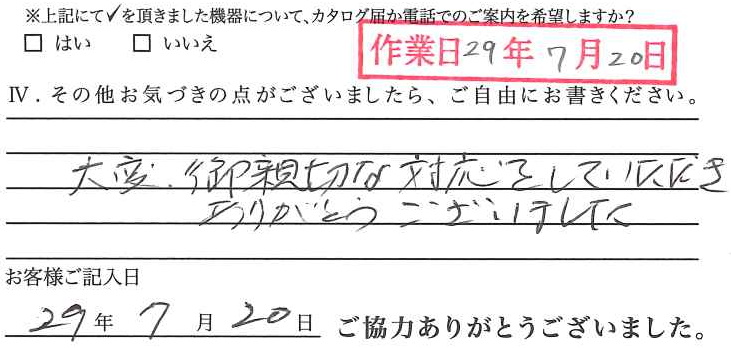 ※上記にて✓を頂きました機器について、カタログ届か電話でのご案内を希望しますか?
□ はい □ いいえ
作業日29年7月20日
Ⅳ．その他お気づきの点がございましたら、ご自由にお書きください。
大変、御親切な対応をしていただき
ありがとうございました
お客様ご記入日
29年7月20日 ご協力ありがとうございました。